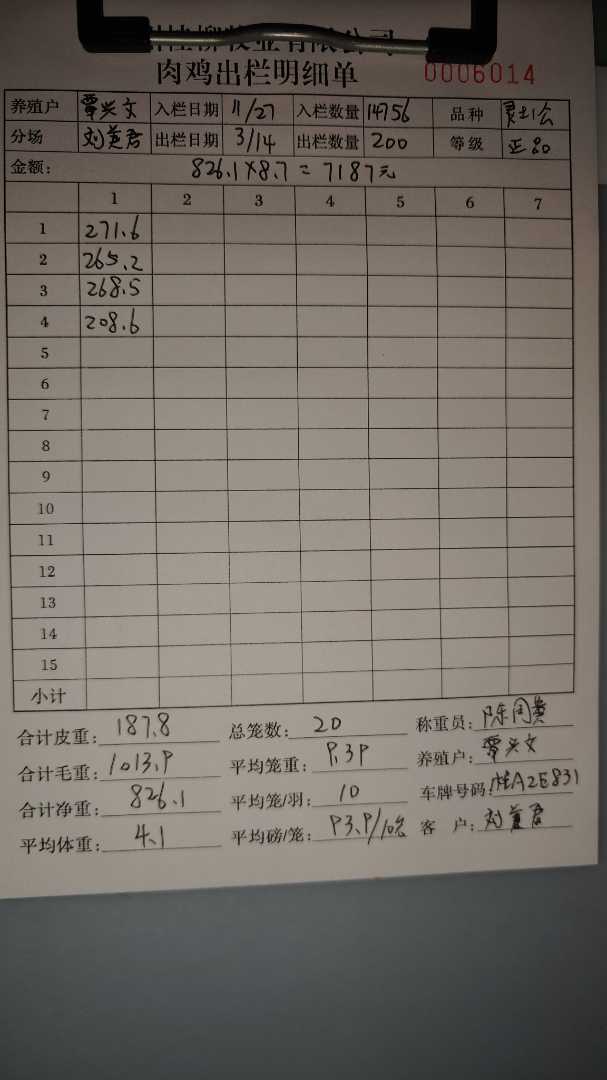 桂柳牧业有限公司
肉鸡出栏明细单 0006014
养殖户 覃兴文 入栏日期 11/27 入栏数量 14756 品种 灵土公
分场 刘莲君 出栏日期 3/14 出栏数量 200 等级 正品
金额: 826.1×8.7=7187元
1 2 3 4 5 6 7
1 271.6
2 265.2
3 268.5
4 208.6
5
6
7
8
9
10
11
12
13
14
15
小计
合计皮重: 187.8 总笼数: 20 称重员:
合计毛重: 1013.9 平均笼重: 9.39 养殖户: 覃兴文
合计净重: 826.1 平均笼/羽: 10 车牌号码: 桂A2E831
平均体重: 4.1 平均磅/笼: 93.9/10笼 客 户: 刘莲君